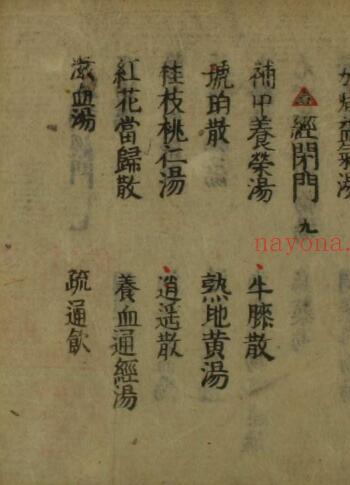 經閉門 九
補中養榮湯
牛膝散
琥珀散
熟地黄湯
桂枝桃仁湯
逍遥散
紅花當歸散
養血通經湯
滋血湯
疏通飲
nayona.